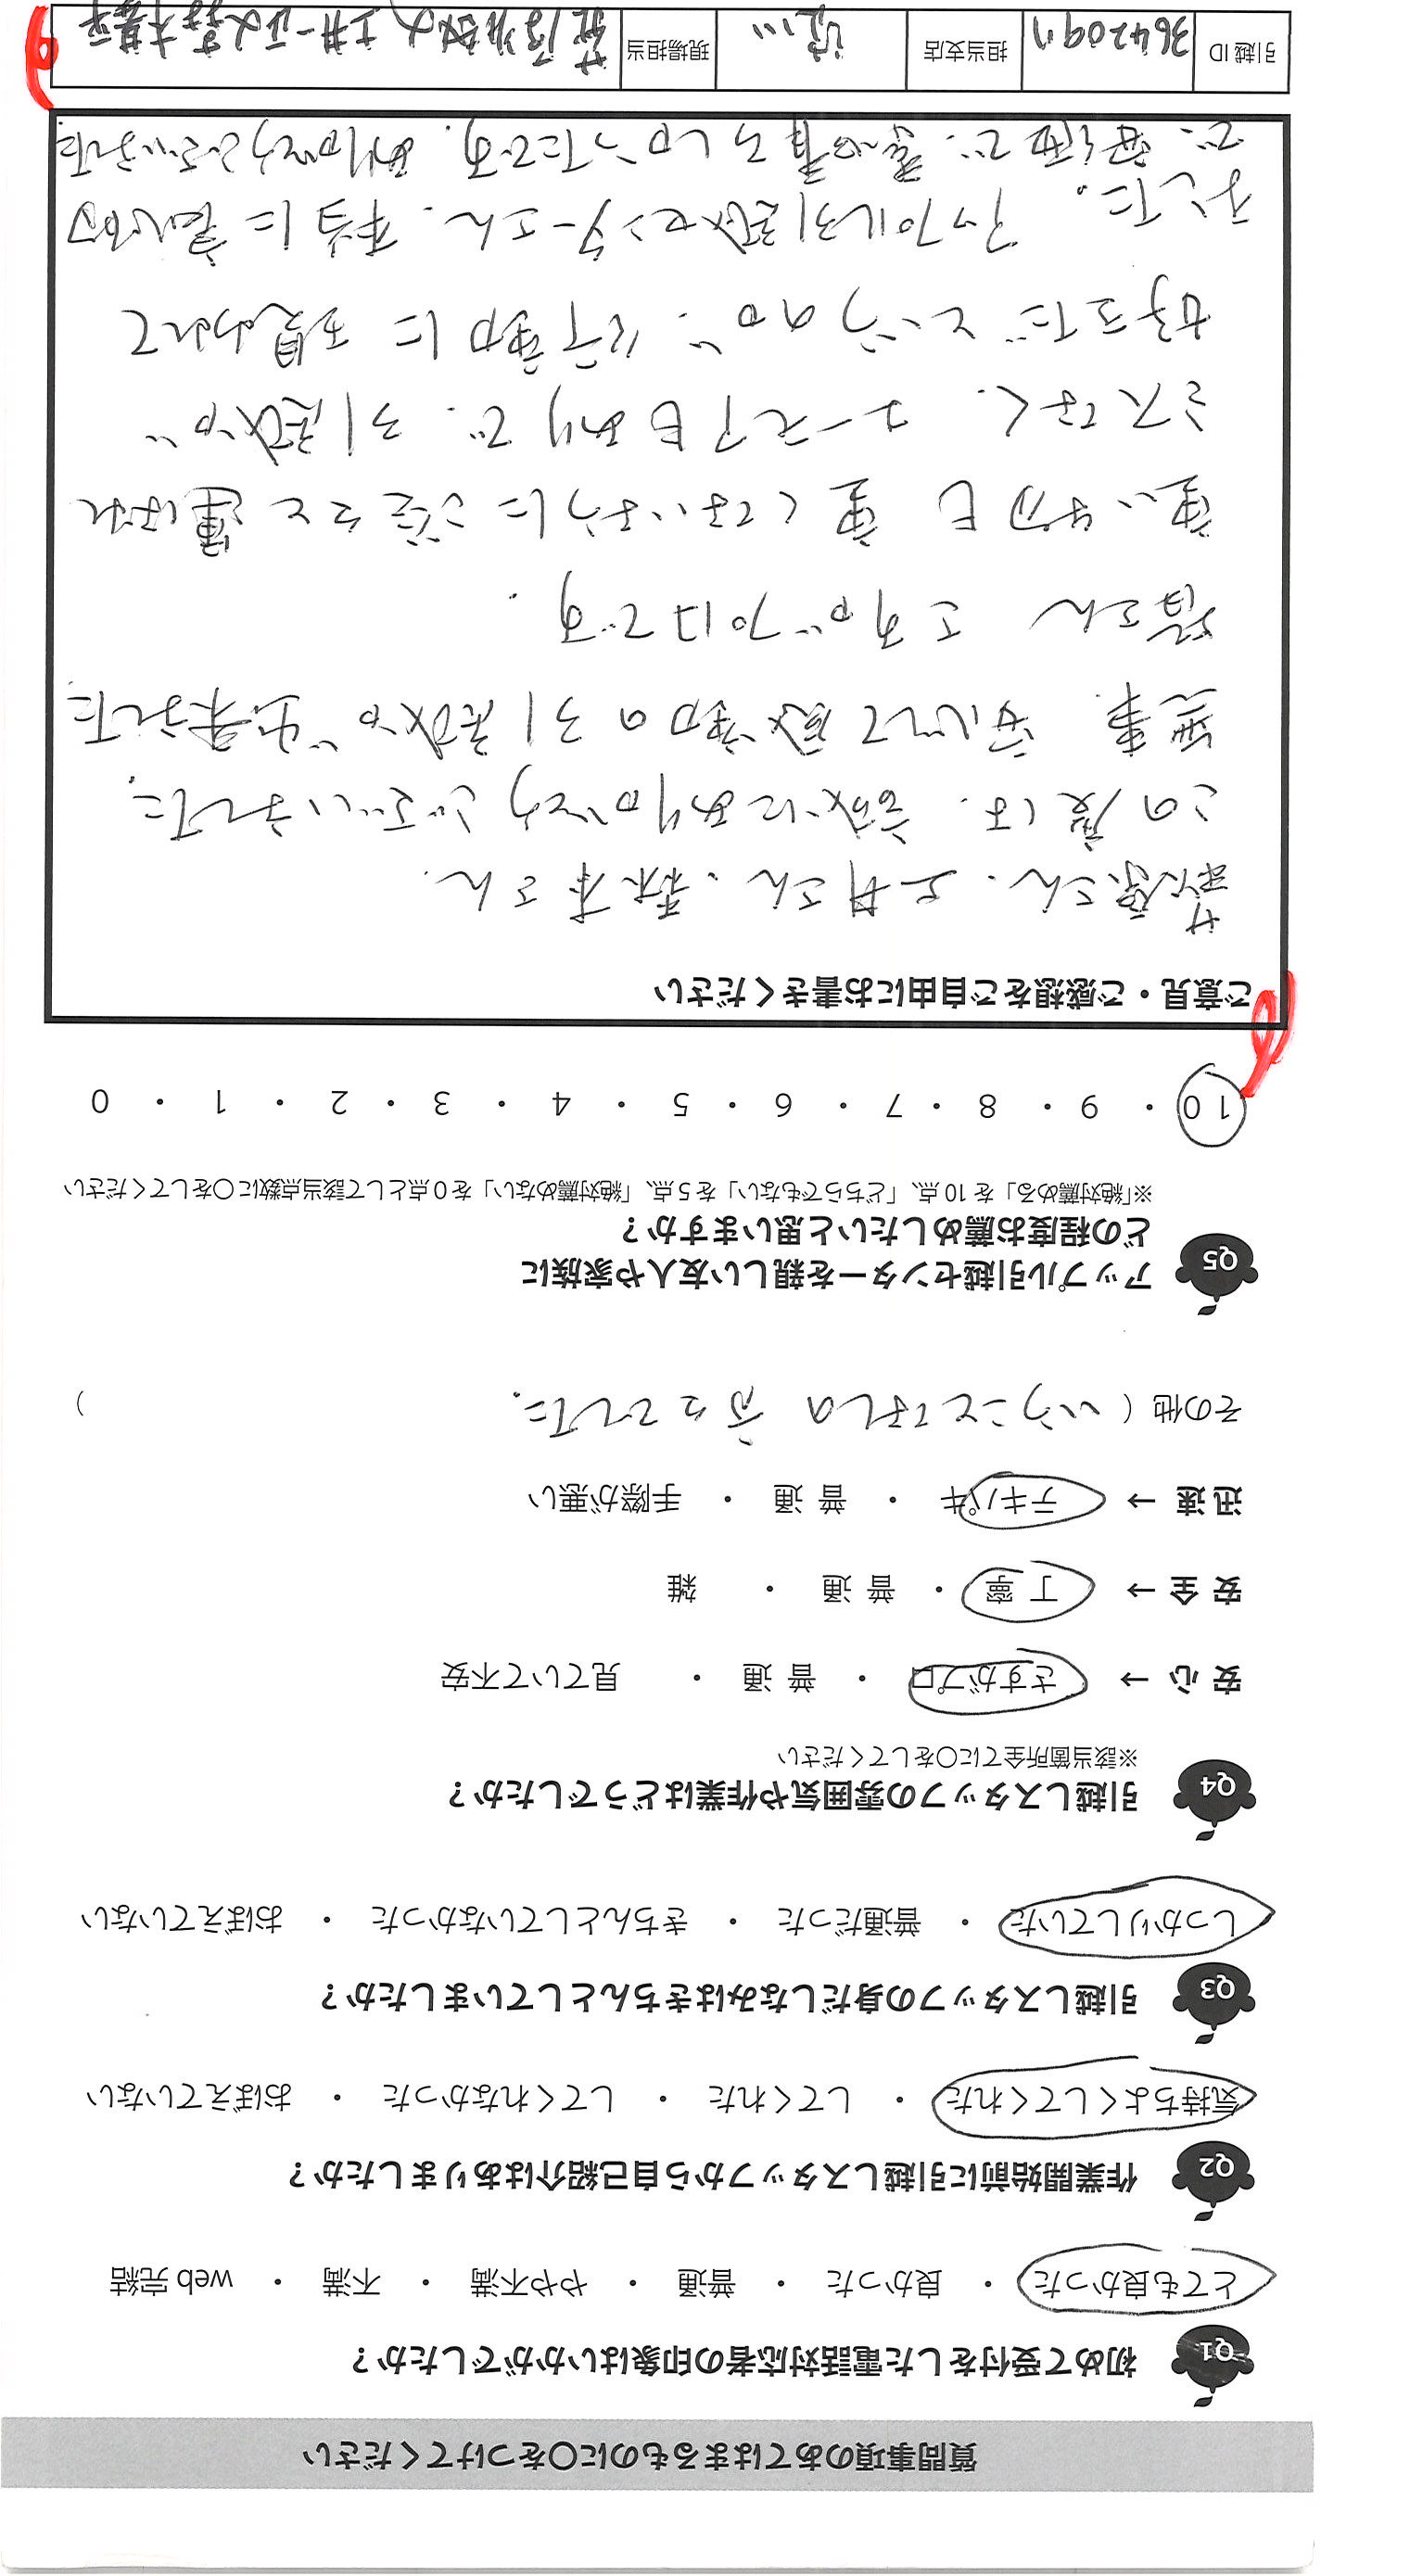 質問事項のあてはまるものに〇をつけてください
Q1 初めて受付をした電話対応者の印象はいかがでしたか？
とても良かった ・ 良かった ・ 普通 ・ やや不満 ・ 不満 ・ web 完結
Q2 作業開始前に引越しスタッフから自己紹介はありましたか？
気持ちよくしてくれた ・ してくれた ・ してくれなかった ・ おぼえていない
Q3 引越しスタッフの身だしなみはきちんとしていましたか？
しっかりしていた ・ 普通だった ・ きちんとしていなかった ・ おぼえていない
Q4 引越しスタッフの雰囲気や作業はどうでしたか？
※該当箇所全てに〇をしてください
安 心 → さすがプロ ・ 普 通 ・ 見ていて不安
安 全 → 丁 寧 ・ 普 通 ・ 雑
迅 速 → テキパキ ・ 普 通 ・ 手際が悪い
その他（ いうことなしの方々でした。 ）
Q5 アップル引越センターを親しい友人や家族に
どの程度お薦めしたいと思いますか？
※「絶対薦める」を 10 点、「どちらでもない」を 5 点、「絶対薦めない」を 0 点として該当点数に〇をしてください
10 ・ 9 ・ 8 ・ 7 ・ 6 ・ 5 ・ 4 ・ 3 ・ 2 ・ 1 ・ 0
ご意見・ご感想をご自由にお書きください
萩原さん、土井さん、森本さん、
この度は、誠にありがとうございました。
無事、安心して感動の引越が出来ました
皆さん さすがプロです。
重い物も重くないように淡々と運ばれ
ミスなく、ユーモアもありで、引越が“
好きだ”というのが、行動に現われて
ました。 アップル引越センターさん、本当に意欲的
で、安価で、素晴らしかったです。ありがとうございました
引越 ID 3642097 担当支店 淀川 現場担当 萩原 土井一正 森本